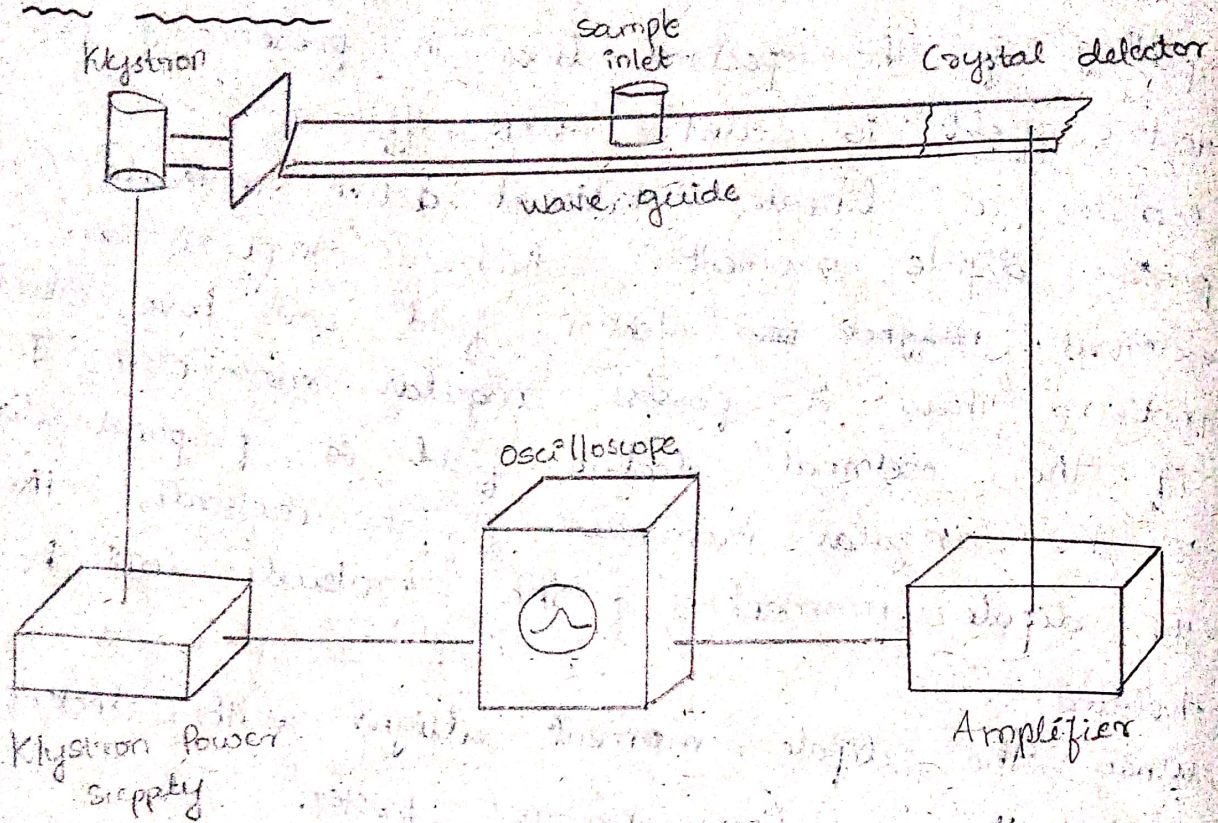 Klystron
sample
inlet
Crystal detector
wave guide
Oscilloscope
Klystron Power
supply
Amplifier